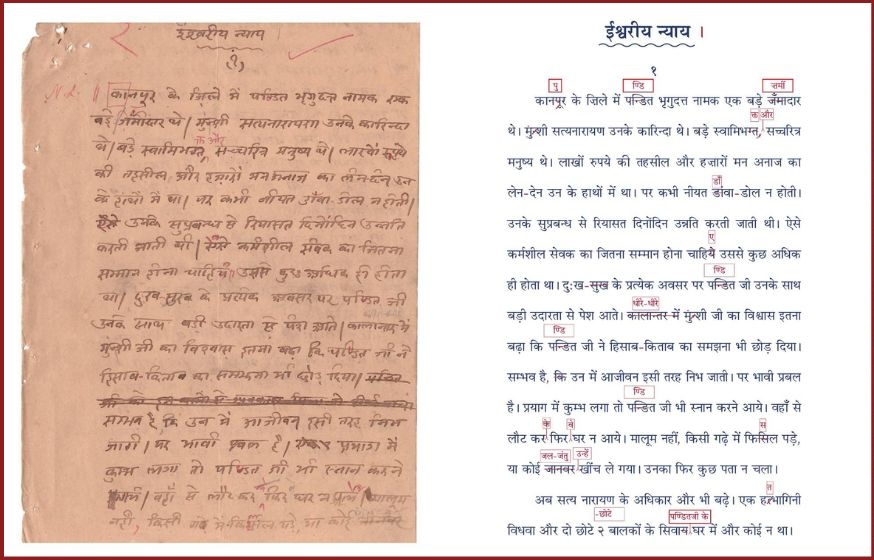 ईश्वरीय न्याय
(१)
कानपूर के ज़िले में पण्डित भृगुदत्त नामक एक
बड़े ज़मींदार थे। मुन्शी सत्यनारायण उनके कारिन्दा
और
थे। बड़े स्वामिभक्त, सच्चरित्र मनुष्य थे। लाखों रुपये
की तहसील और हज़ारों मन अनाज का लेन-देन उन
के हाथों में था। पर कभी नीयत डाँवा-डोल न होती।
ऐसे उनके सुप्रबन्ध से रियासत दिनोंदिन उन्नति
करती जाती थी। ऐसे कर्मशील सेवक का जितना
सम्मान होना चाहिये उससे कुछ अधिक ही होता
था। दुःख-सुख के प्रत्येक अवसर पर पण्डित जी
उनके साथ बड़ी उदारता से पेश आते। कालान्तर में
मुन्शी जी का विश्वास इतना बढ़ा कि पण्डित जी ने
हिसाब-किताब का समझना भी छोड़ दिया।
सम्भव है, कि उन में आजीवन इसी तरह निभ
जाती। पर भावी प्रबल है। प्रयाग में
कुम्भ लगा तो पण्डित जी भी स्नान करने
आये। वहाँ से लौट कर फिर घर न आये। मालूम
नहीं, किसी गढ़े में फिसिल पड़े, या कोई जानवर
ईश्वरीय न्याय ।
१
पु ण्डि ज़मीं
कानपूर के ज़िले में पन्डित भृगुदत्त नामक एक बड़े जँमादार
क्त और
थे। मुंन्शी सत्यनारायण उनके कारिन्दा थे। बड़े स्वामिभग्त, सच्चरित्र
मनुष्य थे। लाखों रुपये की तहसील और हज़ारों मन अनाज का
डाँ
लेन-देन उन के हाथों में था। पर कभी नीयत डांवा-डोल न होती।
उनके सुप्रबन्ध से रियासत दिनोंदिन उन्नति करती जाती थी। ऐसे
ए
कर्मशील सेवक का जितना सम्मान होना चाहिये उससे कुछ अधिक
ण्डि
ही होता था। दुःख-सुख के प्रत्येक अवसर पर पन्डित जी उनके साथ
धीरे-धीरे
बड़ी उदारता से पेश आते। कालान्तर में मुंन्शी जी का विश्वास इतना
ण्डि
बढ़ा कि पन्डित जी ने हिसाब-किताब का समझना भी छोड़ दिया।
सम्भव है, कि उन में आजीवन इसी तरह निभ जाती। पर भावी प्रबल
ण्डि
है। प्रयाग में कुम्भ लगा तो पन्डित जी भी स्नान करने आये। वहाँ से
के वे स
लौट कर फिर घर न आये। मालूम नहीं, किसी गढ़े में फिसिल पड़े,
जल-जंतु उन्हें
या कोई जानवर खींच ले गया। उनका फिर कुछ पता न चला।
त
अब सत्य नारायण के अधिकार और भी बढ़े। एक हत्भागिनी
-छोटे पण्डितजी के
विधवा और दो छोटे २ बालकों के सिवाय घर में और कोई न था।